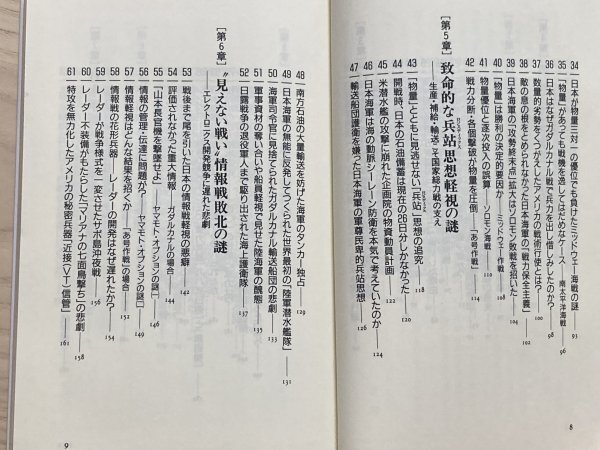 34 日本が物量三対一の優位でも負けたミッドウェー海戦の謎 93
35 “物量”があっても戦機を逸してはだめなケース 南太平洋海戦 94
36 日本はなぜガダルカナル戦で兵力を出し惜しみしたのか? 96
37 数量的劣勢をくつがえしたアメリカの戦術行使とは? 100
38 敵の息の根をとめられなかった日本海軍の「戦力保全主義」 102
39 日本海軍の「攻勢終末点」拡大はソロモン敗戦を招いた 104
40 “物量”は勝利の決定的要因か ミッドウェー作戦 108
41 物量優位と逐次投入の誤算 ソロモン海戦 110
42 戦力分断・各個撃破が物量を圧倒 「あ号作戦」 114
[第5章] 致命的な〈兵站思想〉軽視の謎
——生産・補給・輸送こそ国家総力戦の支え
43 “物量”とともに見逃せない「兵站」思想の追究 118
44 開戦時、日本の石油備蓄は現在の26日分しかなかった
45 米潜水艦の攻撃に崩れた企画院の物資動員計画 122
46 日本海軍は海の動脈シーレーン防衛を本気で考えていたのか 124
47 輸送船団護衛を嫌った日本海軍の軍尊民卑的兵站思想 126
8
48 南方石油の大量輸送を妨げた海軍のタンカー独占 129
49 日本海軍の無能に反発してつくられた世界最初の「陸軍潜水艦隊」 131
50 海軍司令官に見捨てられたガダルカナル輸送船団の悲劇
51 軍事資材の奪い合いや船員軽視で見せた陸海軍の醜態 135
52 日露戦争の退役軍人まで駆り出された海上護衛隊 137
[第6章] “見えない戦い”情報戦敗北の謎
——エレクトロニクス開発競争に遅れた悲劇
53 戦後まで尾を引いた日本の情報戦軽視の悪癖 142
54 評価されなかった重大情報 ガダルカナルの場合 144
55 「山本長官機を撃墜せよ」 ヤマモト・オプションの謎① 146
56 情報の管理・伝達に問題が? ヤマモト・オプションの謎② 149
57 情報軽視はどんな結果を招くか 「あ号作戦」の場合 152
58 情報戦の花形兵器——レーダーの開発はなぜ遅れたか? 154
59 レーダーが戦争様式を一変させたサボ島沖夜戦 156
60 レーダー不装備がもたらした「マリアナの七面鳥撃ち」の悲劇 158
61 特攻を無力化したアメリカの秘密兵器「近接(VT)信管」 161
9